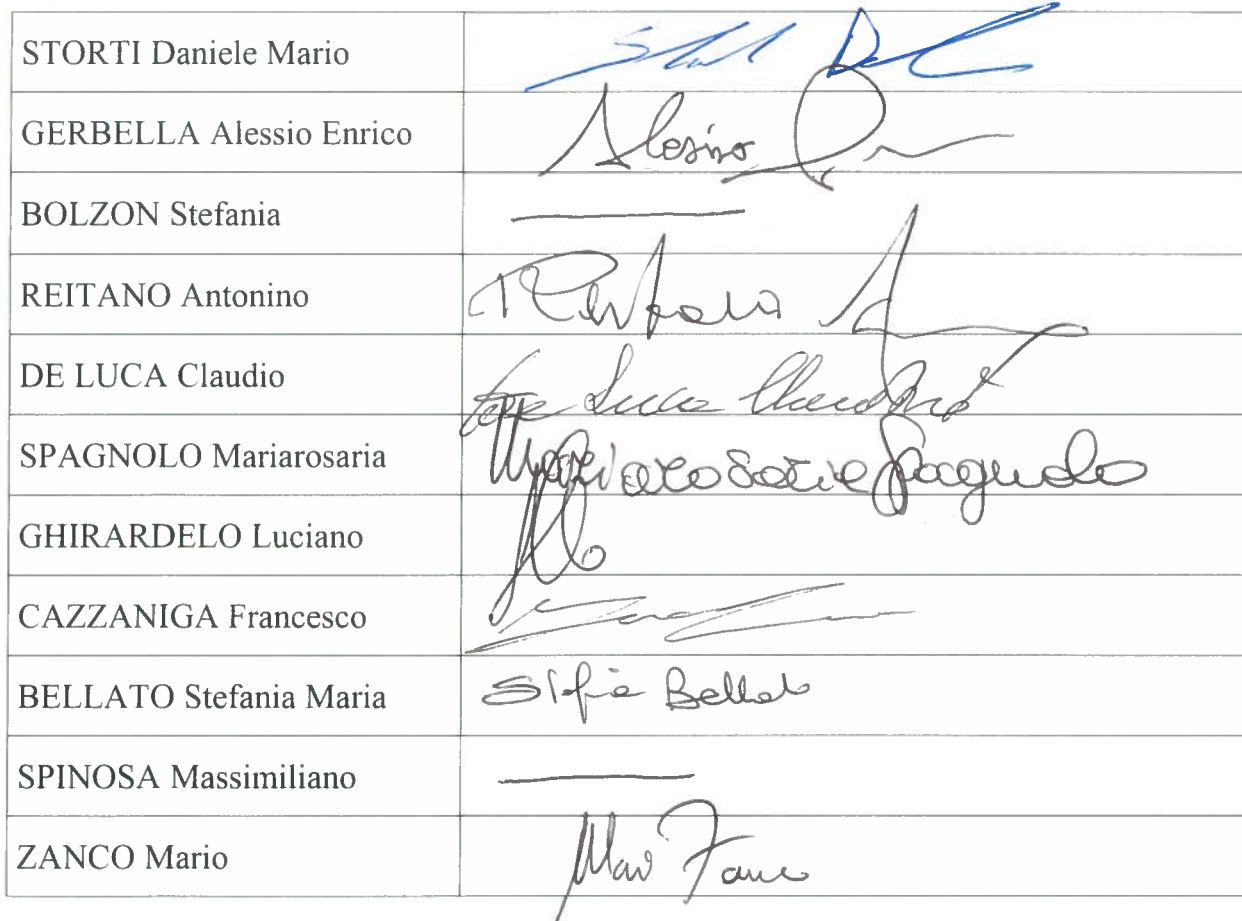 STORTI Daniele Mario
GERBELLA Alessio Enrico Alessio
BOLZON Stefania
REITANO Antonino
DE LUCA Claudio De Luca Claudio
SPAGNOLO Mariarosaria Mariarosaria Spagnolo
GHIRARDELO Luciano
CAZZANIGA Francesco
BELLATO Stefania Maria Bellato
SPINOSA Massimiliano
ZANCO Mario